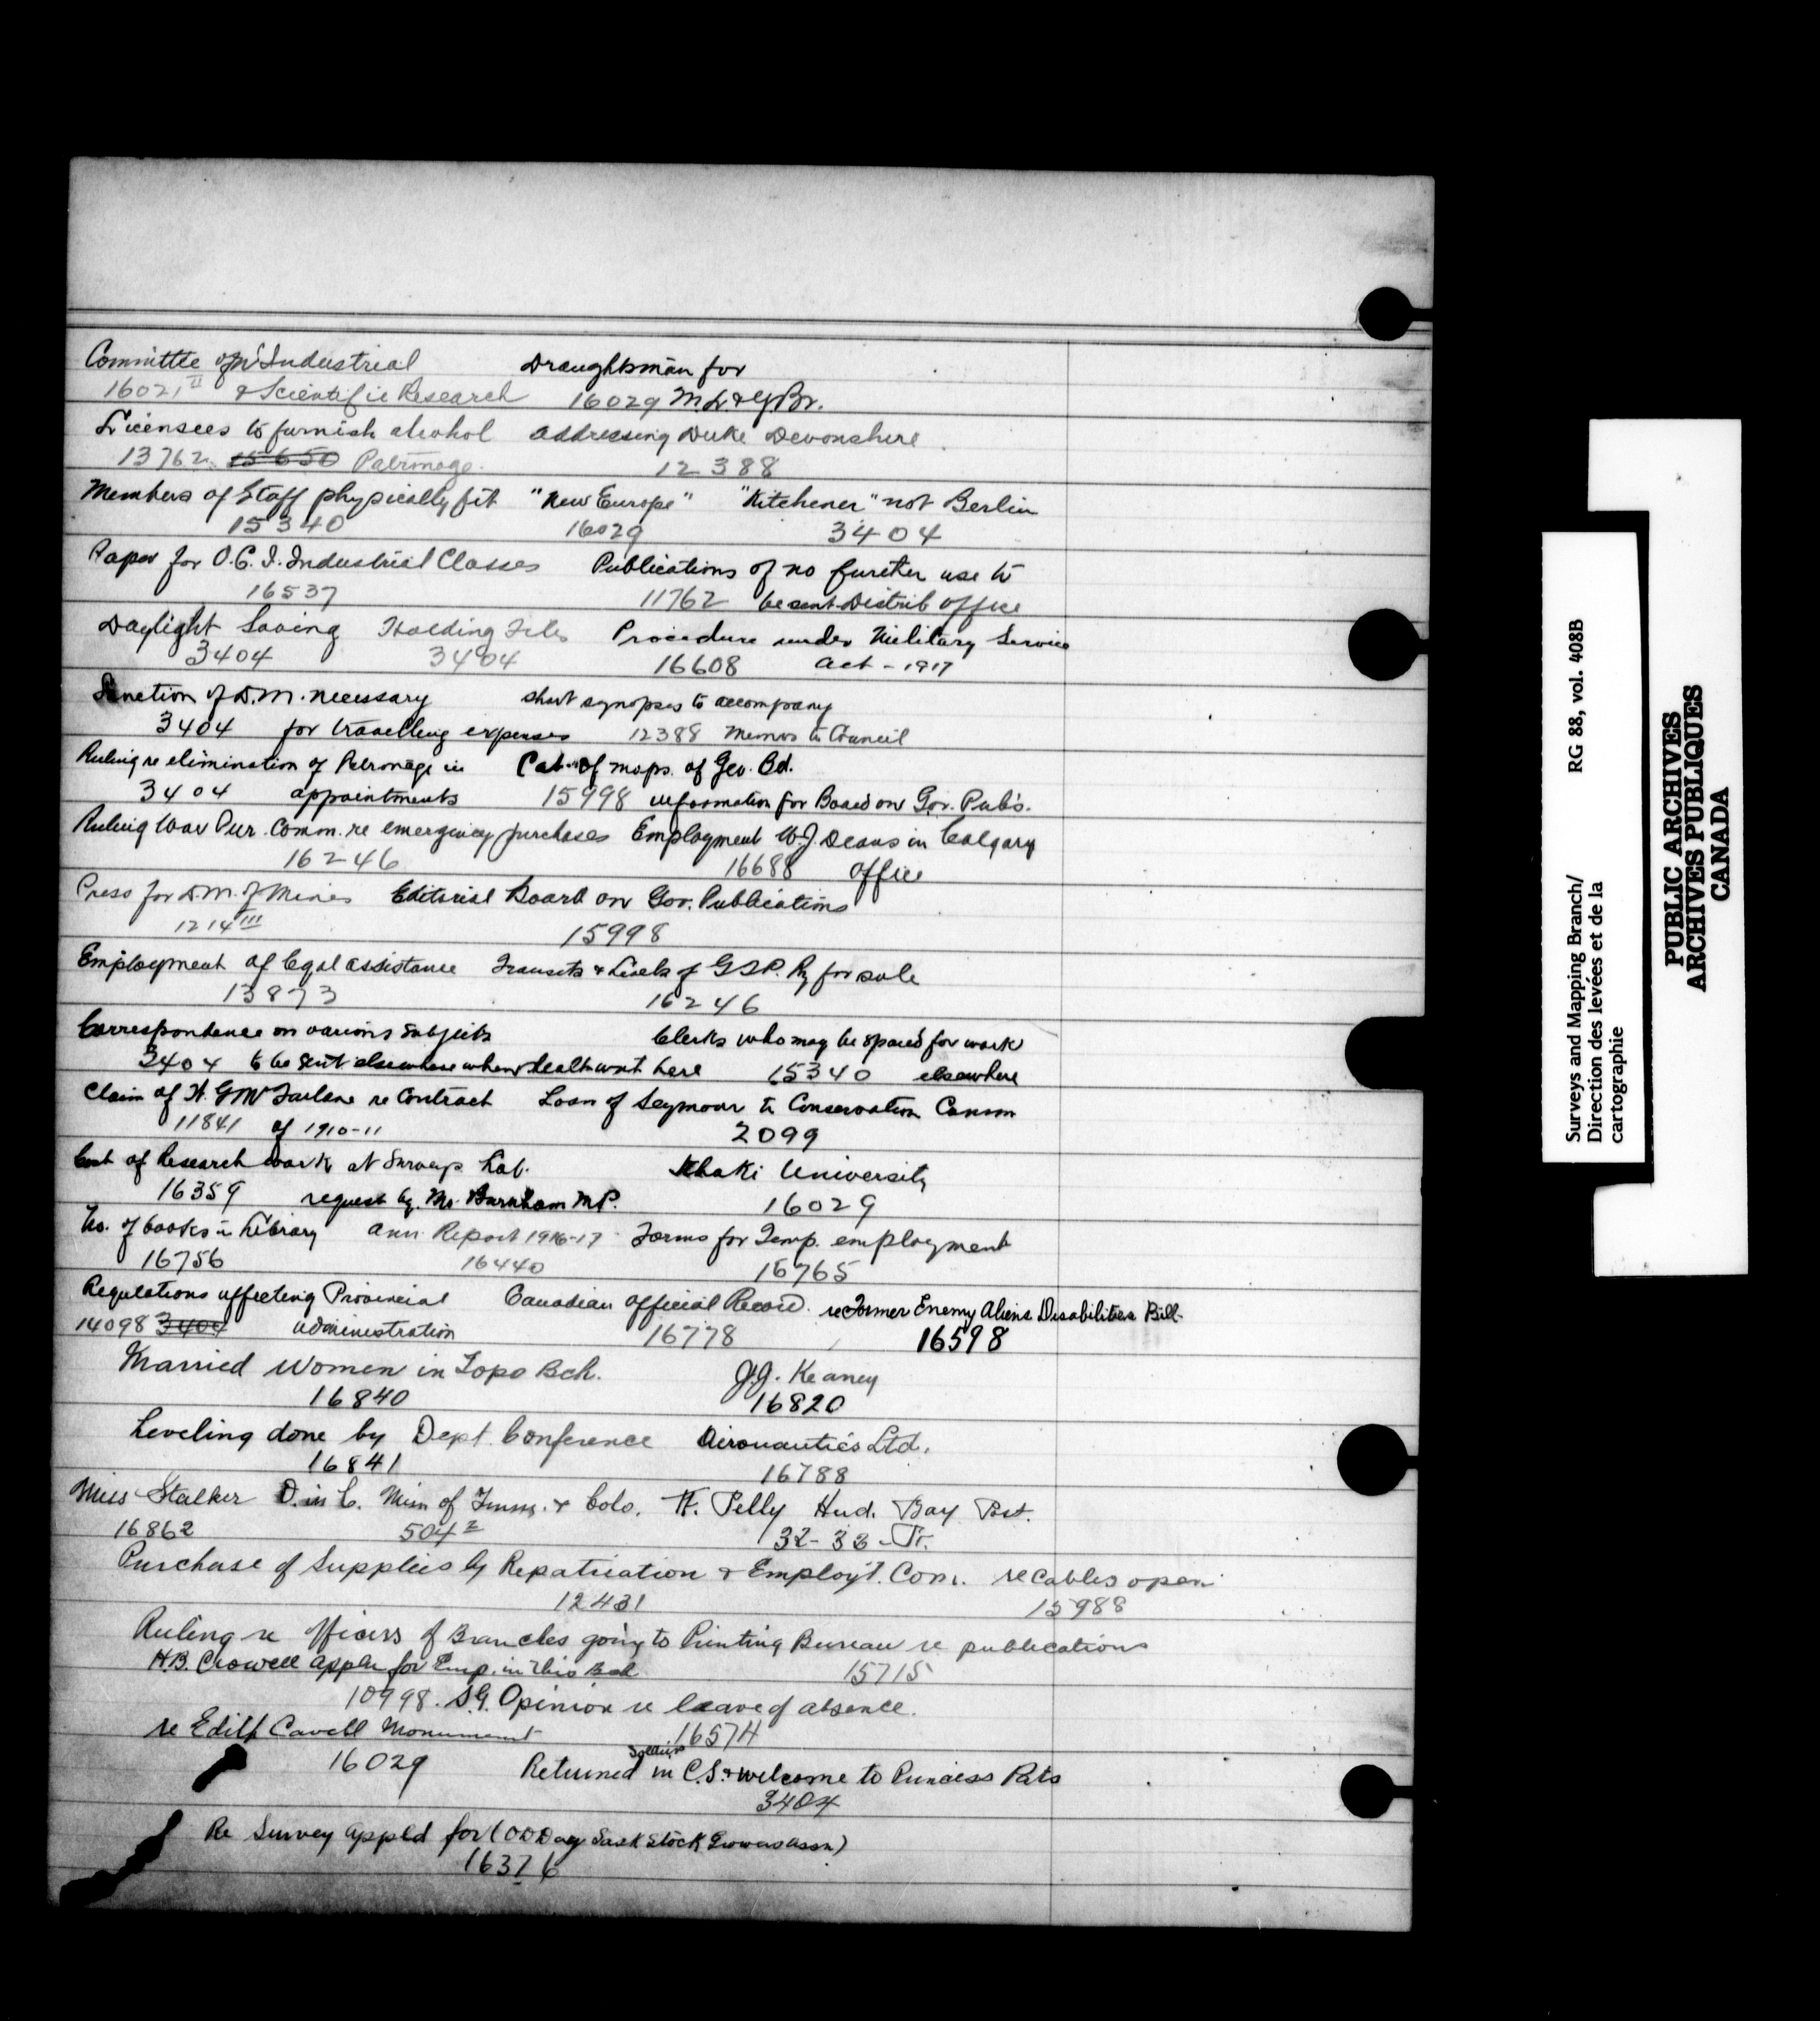 Committee of Industrial Draughtsman for
16021 II & Scientific Research 16029 M.L. & Y.Br.
Licensees to furnish alcohol addressing Duke Devonshire
13762 15650 Patronage. 12388
Members of Staff physically fit "New Europe" "Kitchener" not Berlin
15340 16029 3404
Paper for O.C.I. Industrial Classes Publications of no further use to
16537 11762 be sent Distrib office
Daylight Saving Holding Files Procedure under Military Service
3404 3404 16608 Act - 1917
Sanction of D.M. necessary short synopses to accompany
3404 for travelling expenses 12388 memos to Council
Ruling re elimination of Patronage in Cat. of maps of Geo. Bd.
3404 appointments 15998 information for Board on Gov. Pubs.
Ruling War Pur. Comm. re emergency purchases Employment W.J. Deans in Calgary
16246 16688 office
Press for D.M. of Mines Editorial Board on Gov. Publications
1214 III 15998
Employment of legal assistance Transits & Levels of G.T.P. Ry for sale
13873 16246
Correspondence on various subjects Clerks who may be spared for work
3404 to be sent elsewhere when dealt with here 15340 elsewhere
Claim of H. G. McFarlane re Contract Loan of Seymour to Conservation Comm
11841 of 1910-11 2099
Cost of Research work at Surveys Lab. Khaki University
16359 request by Mr. Burnham M.P. 16029
No. of books in Library Ann. Report 1916-17 Forms for Temp. employment
16756 16440 16765
Regulations affecting Provincial Canadian Official Record. re Former Enemy Aliens Disabilities Bill.
14098 3404 administration 16778 16598
Married Women in Topo Bch. J.J. Keaney
16840 16820
Leveling done by Dept. Conference Aironautics Ltd.
16841 16788
Miss Stalker O. in C. Min of Imm. & Colo. Ft. Pelly Hud. Bay Post.
16862 504 2 32-33-Pr.
Purchase of Supplies by Repatriation & Employ't. Com. re Cables open
12431 15988
Ruling re Officers of Branches going to Printing Bureau re publications
H.B. Crowell Appln for Emp. in this Bch 15715
10998. S.G. Opinion re leave of absence.
re Edith Cavell Monument 16574
16029 Returned Soldiers in C.S. & welcome to Princess Pats
3404
Re Survey Appld for (O D Day Sask Stock Growers Assn)
16376
Surveys and Mapping Branch/ RG 88, vol. 408B
Direction des levées et de la
cartographie
PUBLIC ARCHIVES
ARCHIVES PUBLIQUES
CANADA